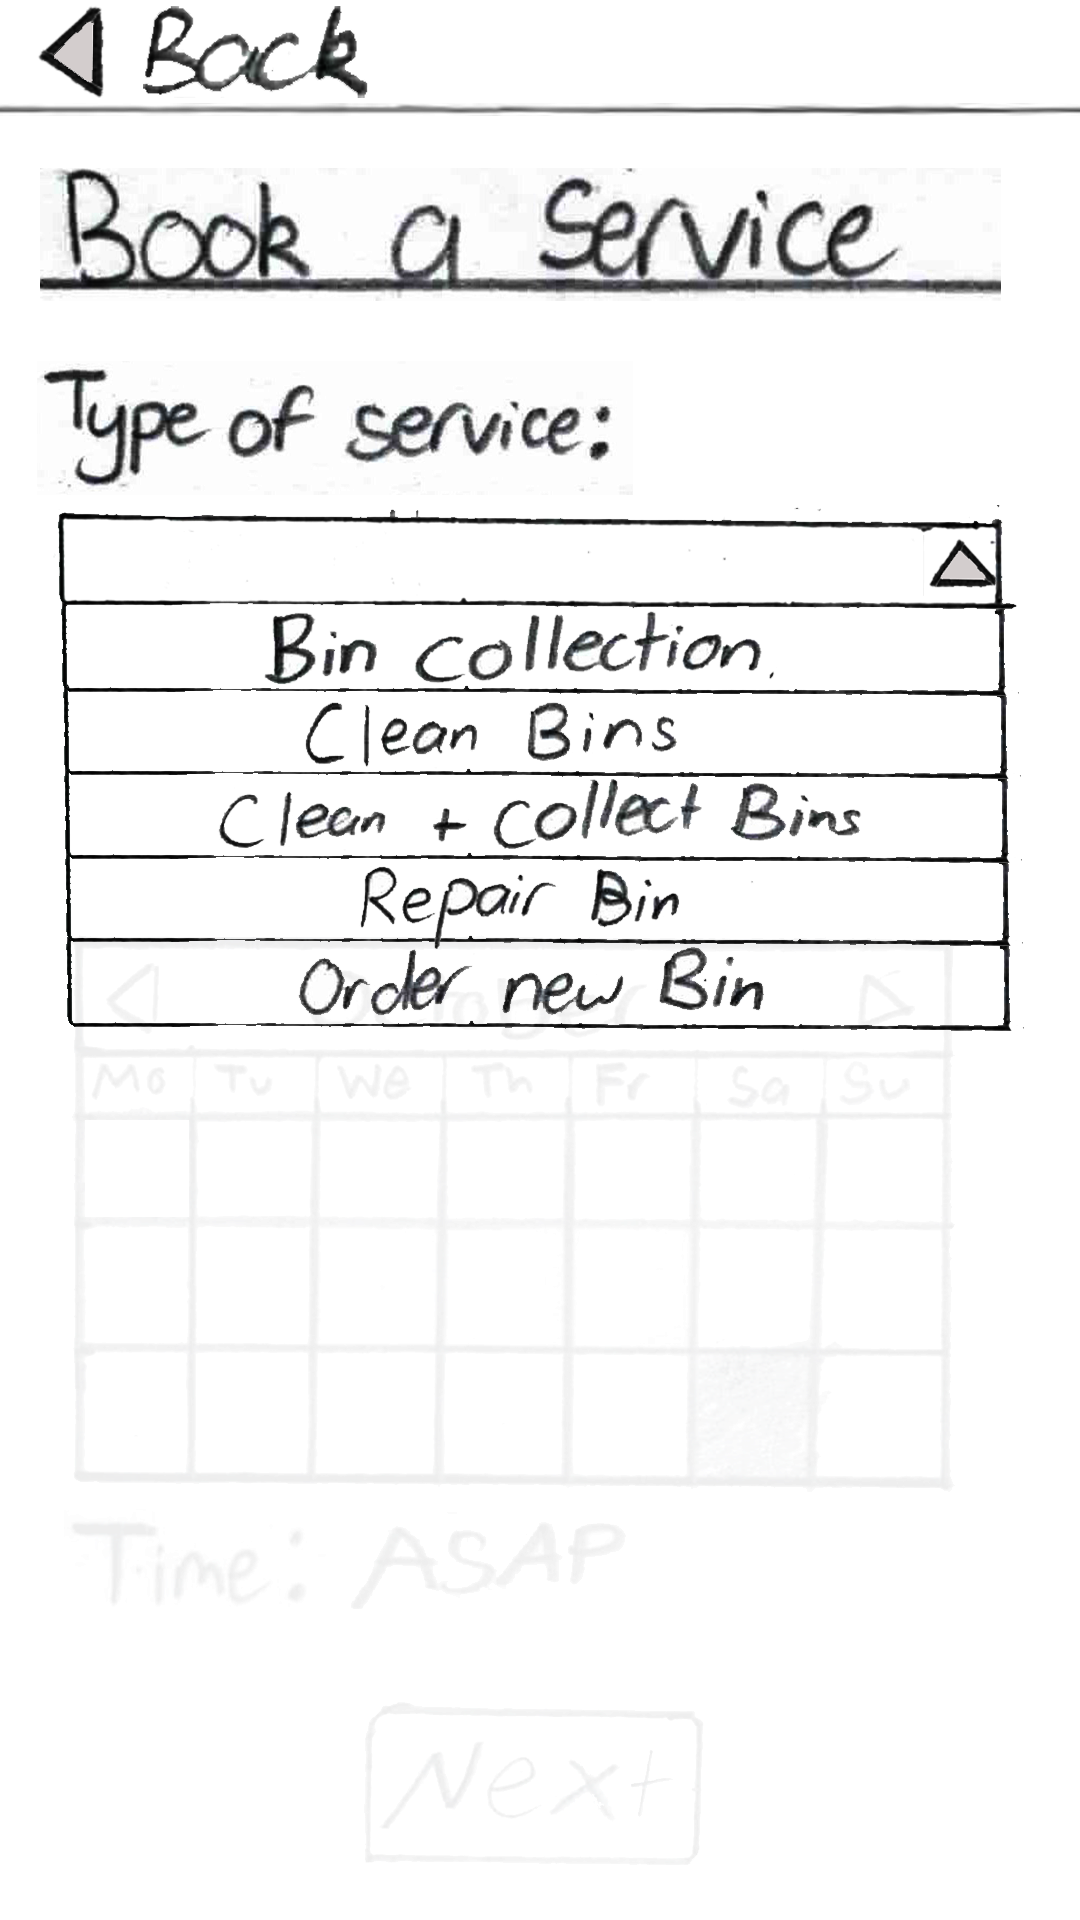 Back
Book a Service
Type of service:
Bin collection
Clean Bins
Clean + collect Bins
Repair Bin
Order new Bin
Mo Tu We Th Fr Sa Su
Time: ASAP
Next